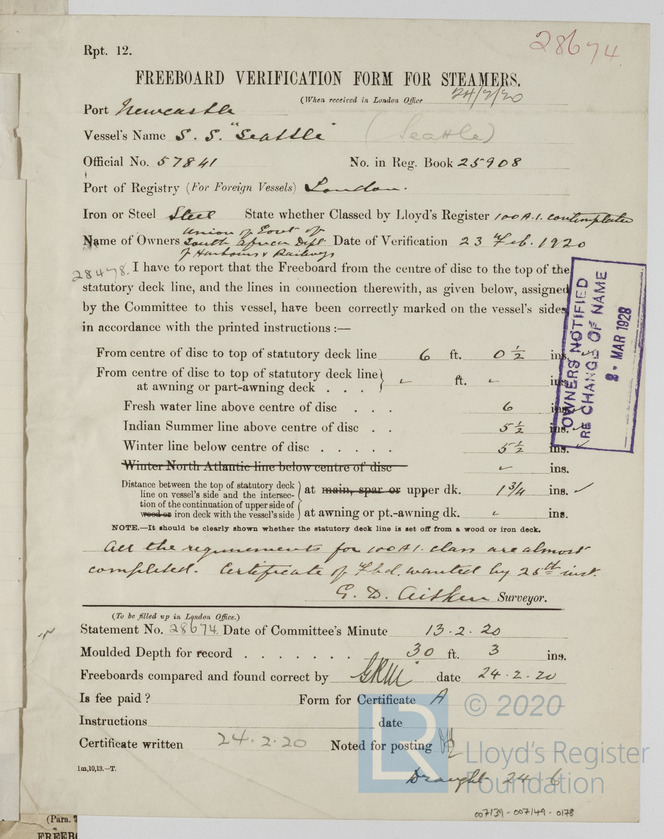 Rpt. 12.
28674
FREEBOARD VERIFICATION FORM FOR STEAMERS.
(When received in London Office 24/2/20
Port Newcastle
Vessel's Name S. S. "Seattle" (Seattle)
Official No. 57841 No. in Reg. Book 25908
Port of Registry (For Foreign Vessels) London.
Iron or Steel Steel State whether Classed by Lloyd's Register 100A.1. contemplated
Union of Govt of
Name of Owners South African Dept Date of Verification 23 Feb. 1920
of Harbours & Railways
28478. I have to report that the Freeboard from the centre of disc to the top of the
statutory deck line, and the lines in connection therewith, as given below, assigned
by the Committee to this vessel, have been correctly marked on the vessel's sides
in accordance with the printed instructions :—
From centre of disc to top of statutory deck line 6 ft. 0 ½ ins.
From centre of disc to top of statutory deck line
at awning or part-awning deck . . . " ft. " ins.
Fresh water line above centre of disc . . . 6 ins.
Indian Summer line above centre of disc . . 5 ½ ins.
Winter line below centre of disc . . . . . 5 ½ ins.
Winter North Atlantic line below centre of disc " ins.
Distance between the top of statutory deck
line on vessel's side and the intersec-
tion of the continuation of upper side of
wood or iron deck with the vessel's side
at main, spar or upper dk. 1 ¾ ins. ✓
at awning or pt.-awning dk. " ins.
NOTE.—It should be clearly shown whether the statutory deck line is set off from a wood or iron deck.
All the requirements for 100A1. class are almost
completed. Certificate of Fbd. wanted by 25th inst.
G. D. Aitken Surveyor.
(To be filled up in London Office.)
Statement No. 28674 Date of Committee's Minute 13.2.20
Moulded Depth for record . . . . . . . 30 ft. 3 ins.
Freeboards compared and found correct by date 24.2.20
Is fee paid? Form for Certificate A
Instructions date
Certificate written 24.2.20 Noted for posting
1m,10,13.—T.
Draught 24 . 6
OWNERS NOTIFIED
RE CHANGE OF NAME
8 - MAR 1928
LR © 2020
Lloyd's Register
Foundation
007139-007149-0178
(Para. 
FREEB